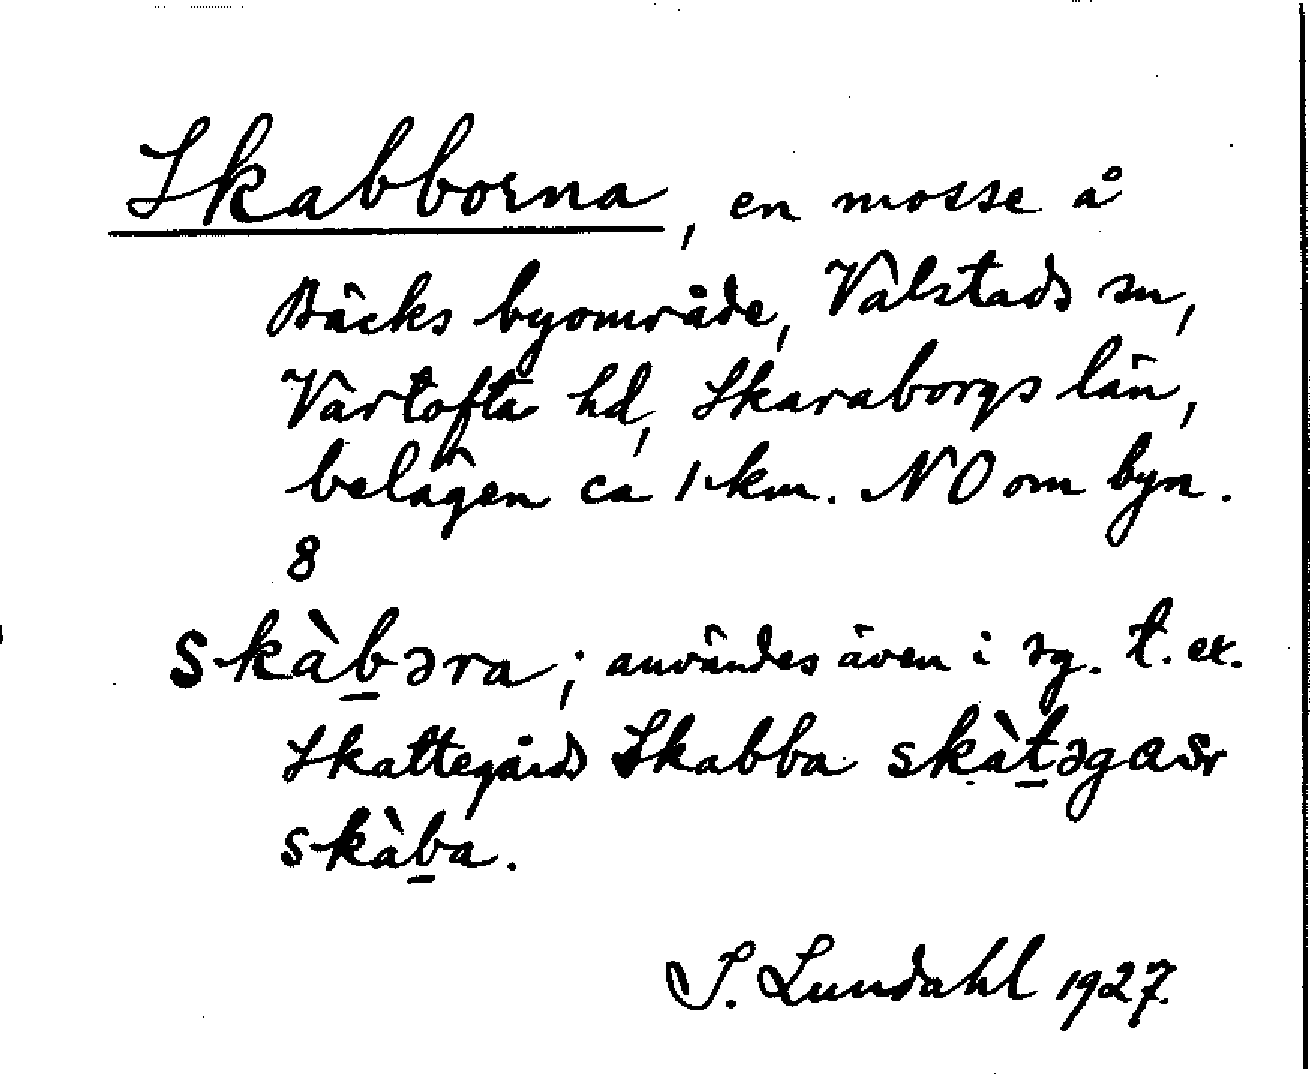 Skabborna, en mosse å
Bäcks byområde, Valstads sn,
Vartofta hd, Skaraborgs län,
belägen ca 1 km. NO om byn.
8
skàb̲əra; användes även i sg. t. ex.
Skattegårds Skabba skàt̲əgaər
skàb̲a.
I. Lundahl 1927.